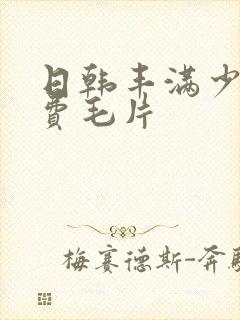 日韩丰满少
费毛片
梅赛德斯-奔